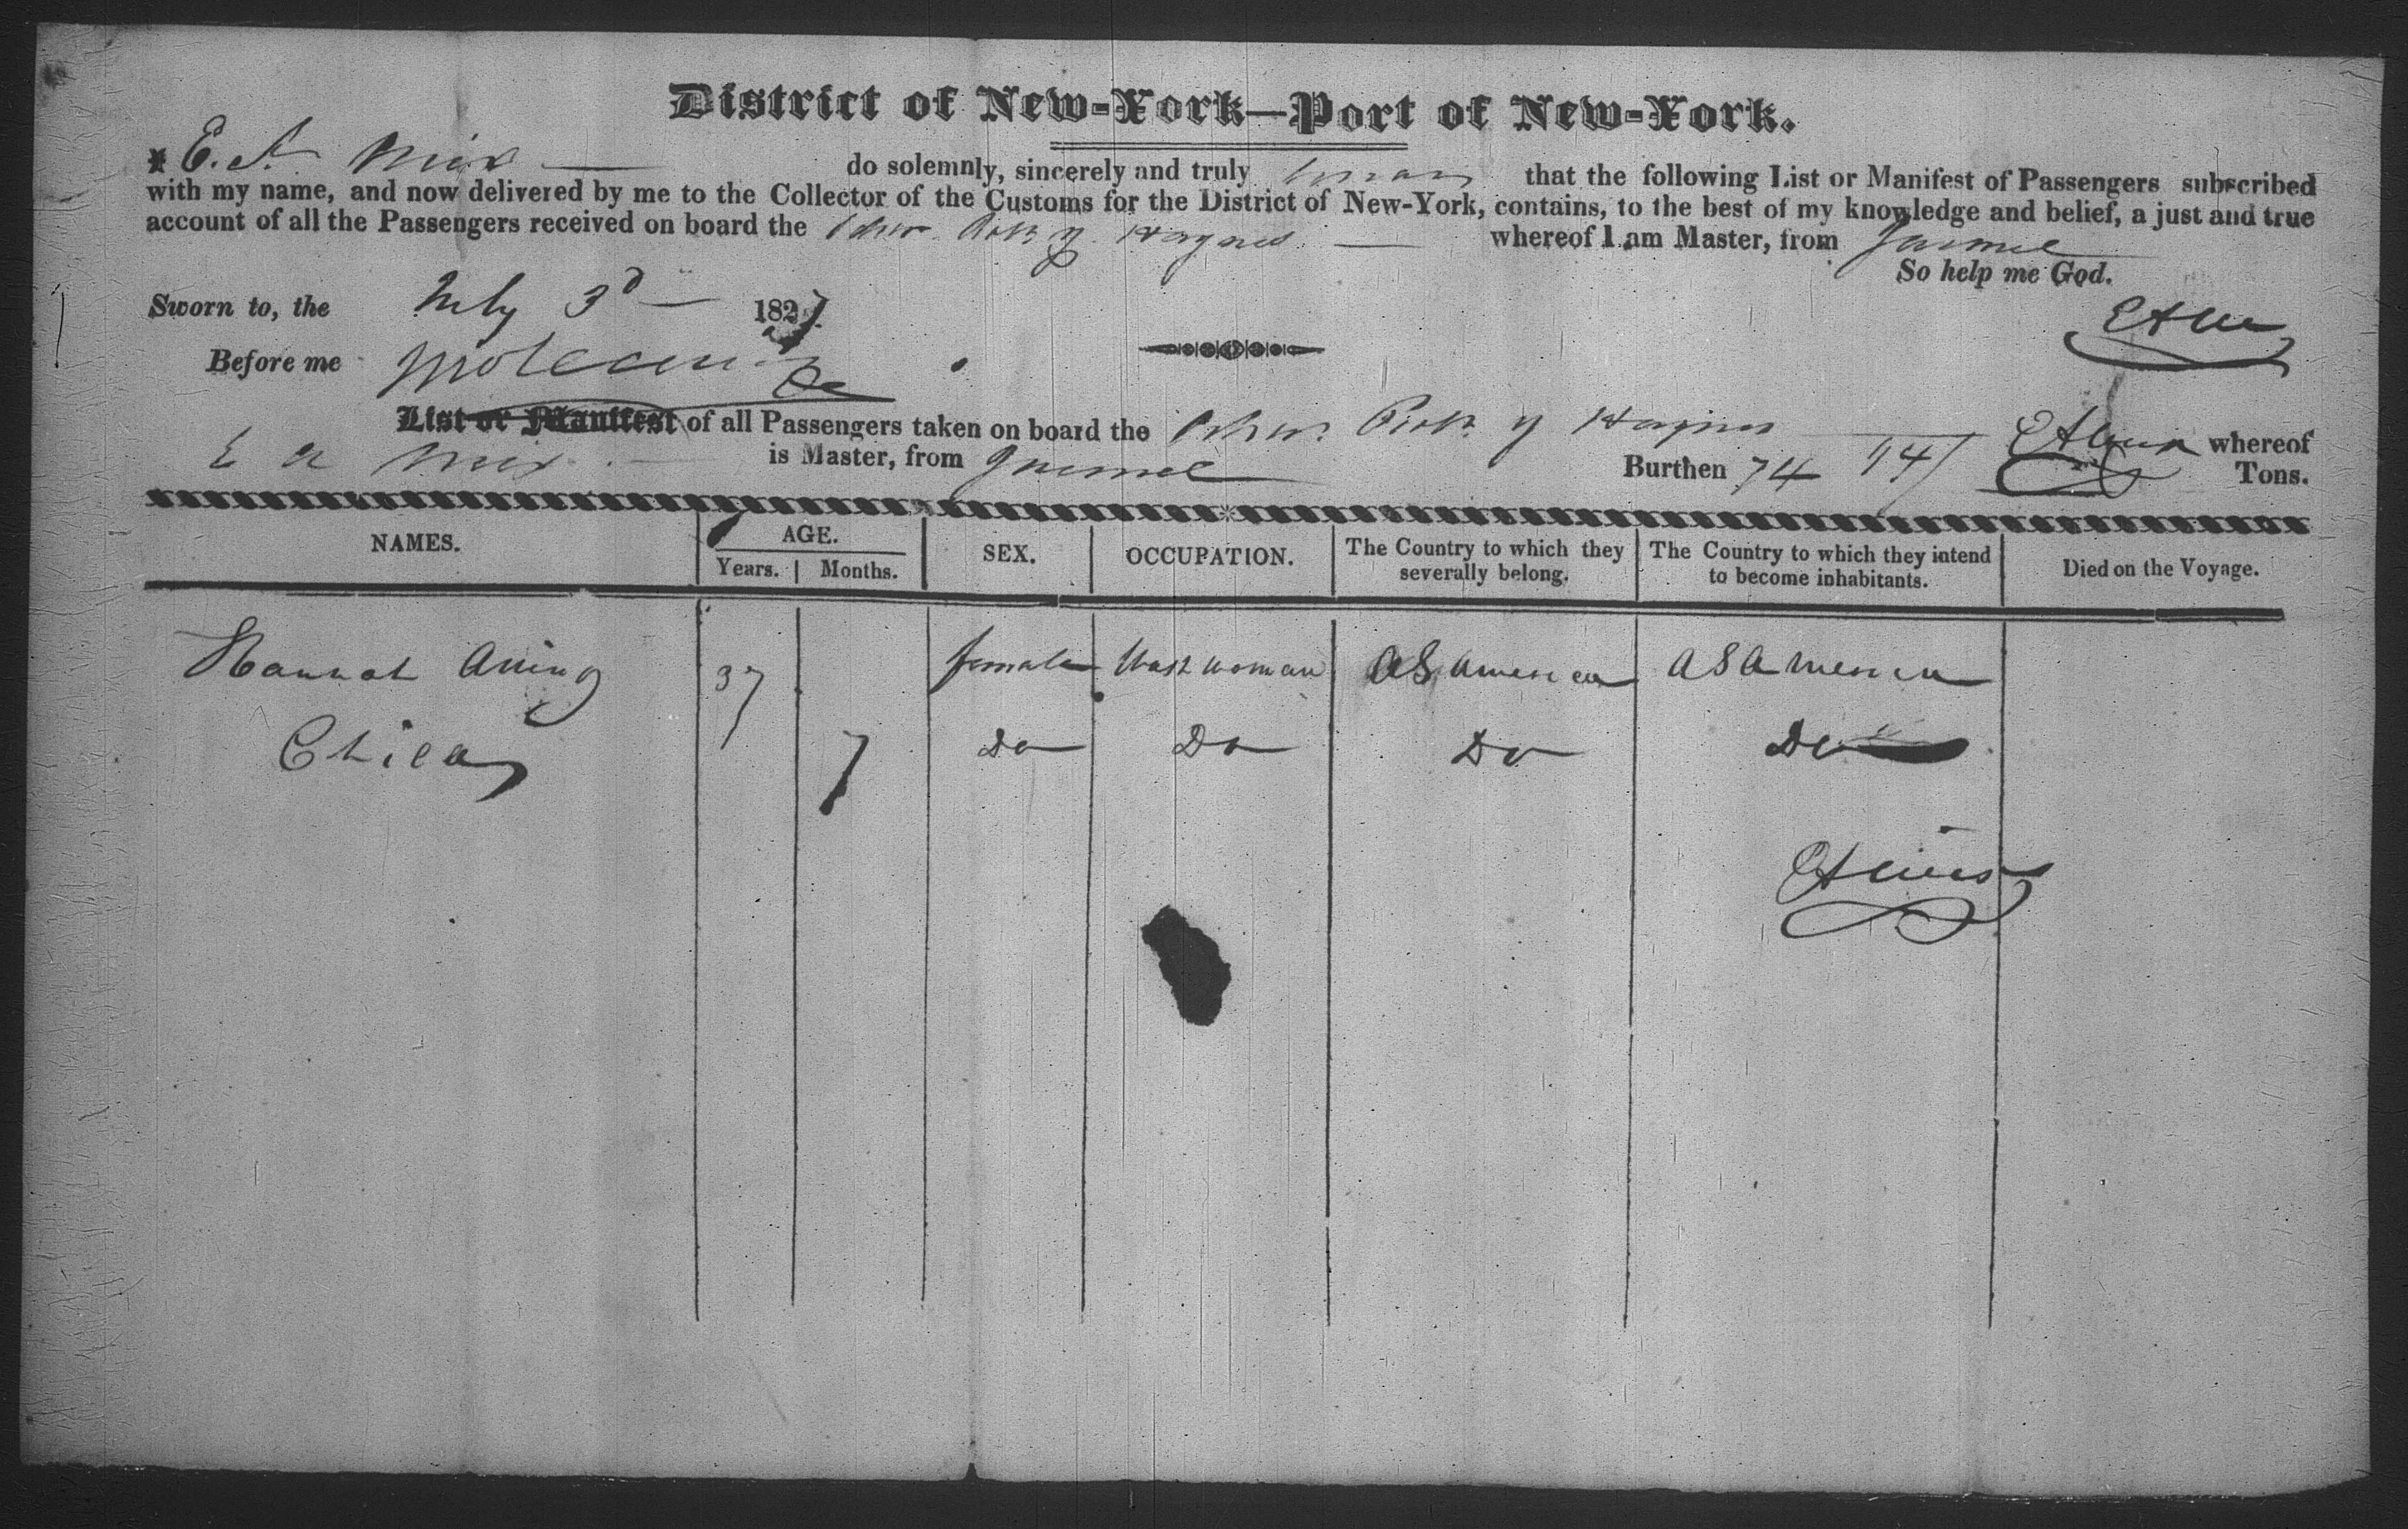 District of New-York—Port of New-York.
I E. A. Mix do solemnly, sincerely and truly swear that the following List or Manifest of Passengers subscribed
with my name, and now delivered by me to the Collector of the Customs for the District of New-York, contains, to the best of my knowledge and belief, a just and true
account of all the Passengers received on board the Schr. Robt. Y. Haynes whereof I am Master, from Jacmel
So help me God.
Sworn to, the July 3d 1827
E A Mix
Before me
List or Manifest of all Passengers taken on board the Schr. Robt. Y Haynes whereof
E A Mix is Master, from Jacmel Burthen 74 Tons.
NAMES. AGE. SEX. OCCUPATION. The Country to which they severally belong. The Country to which they intend to become inhabitants. Died on the Voyage.
Years. Months.
Hannah 37 female Wash woman U S America U S America
Child 7 Do Do Do Do
E A Mix